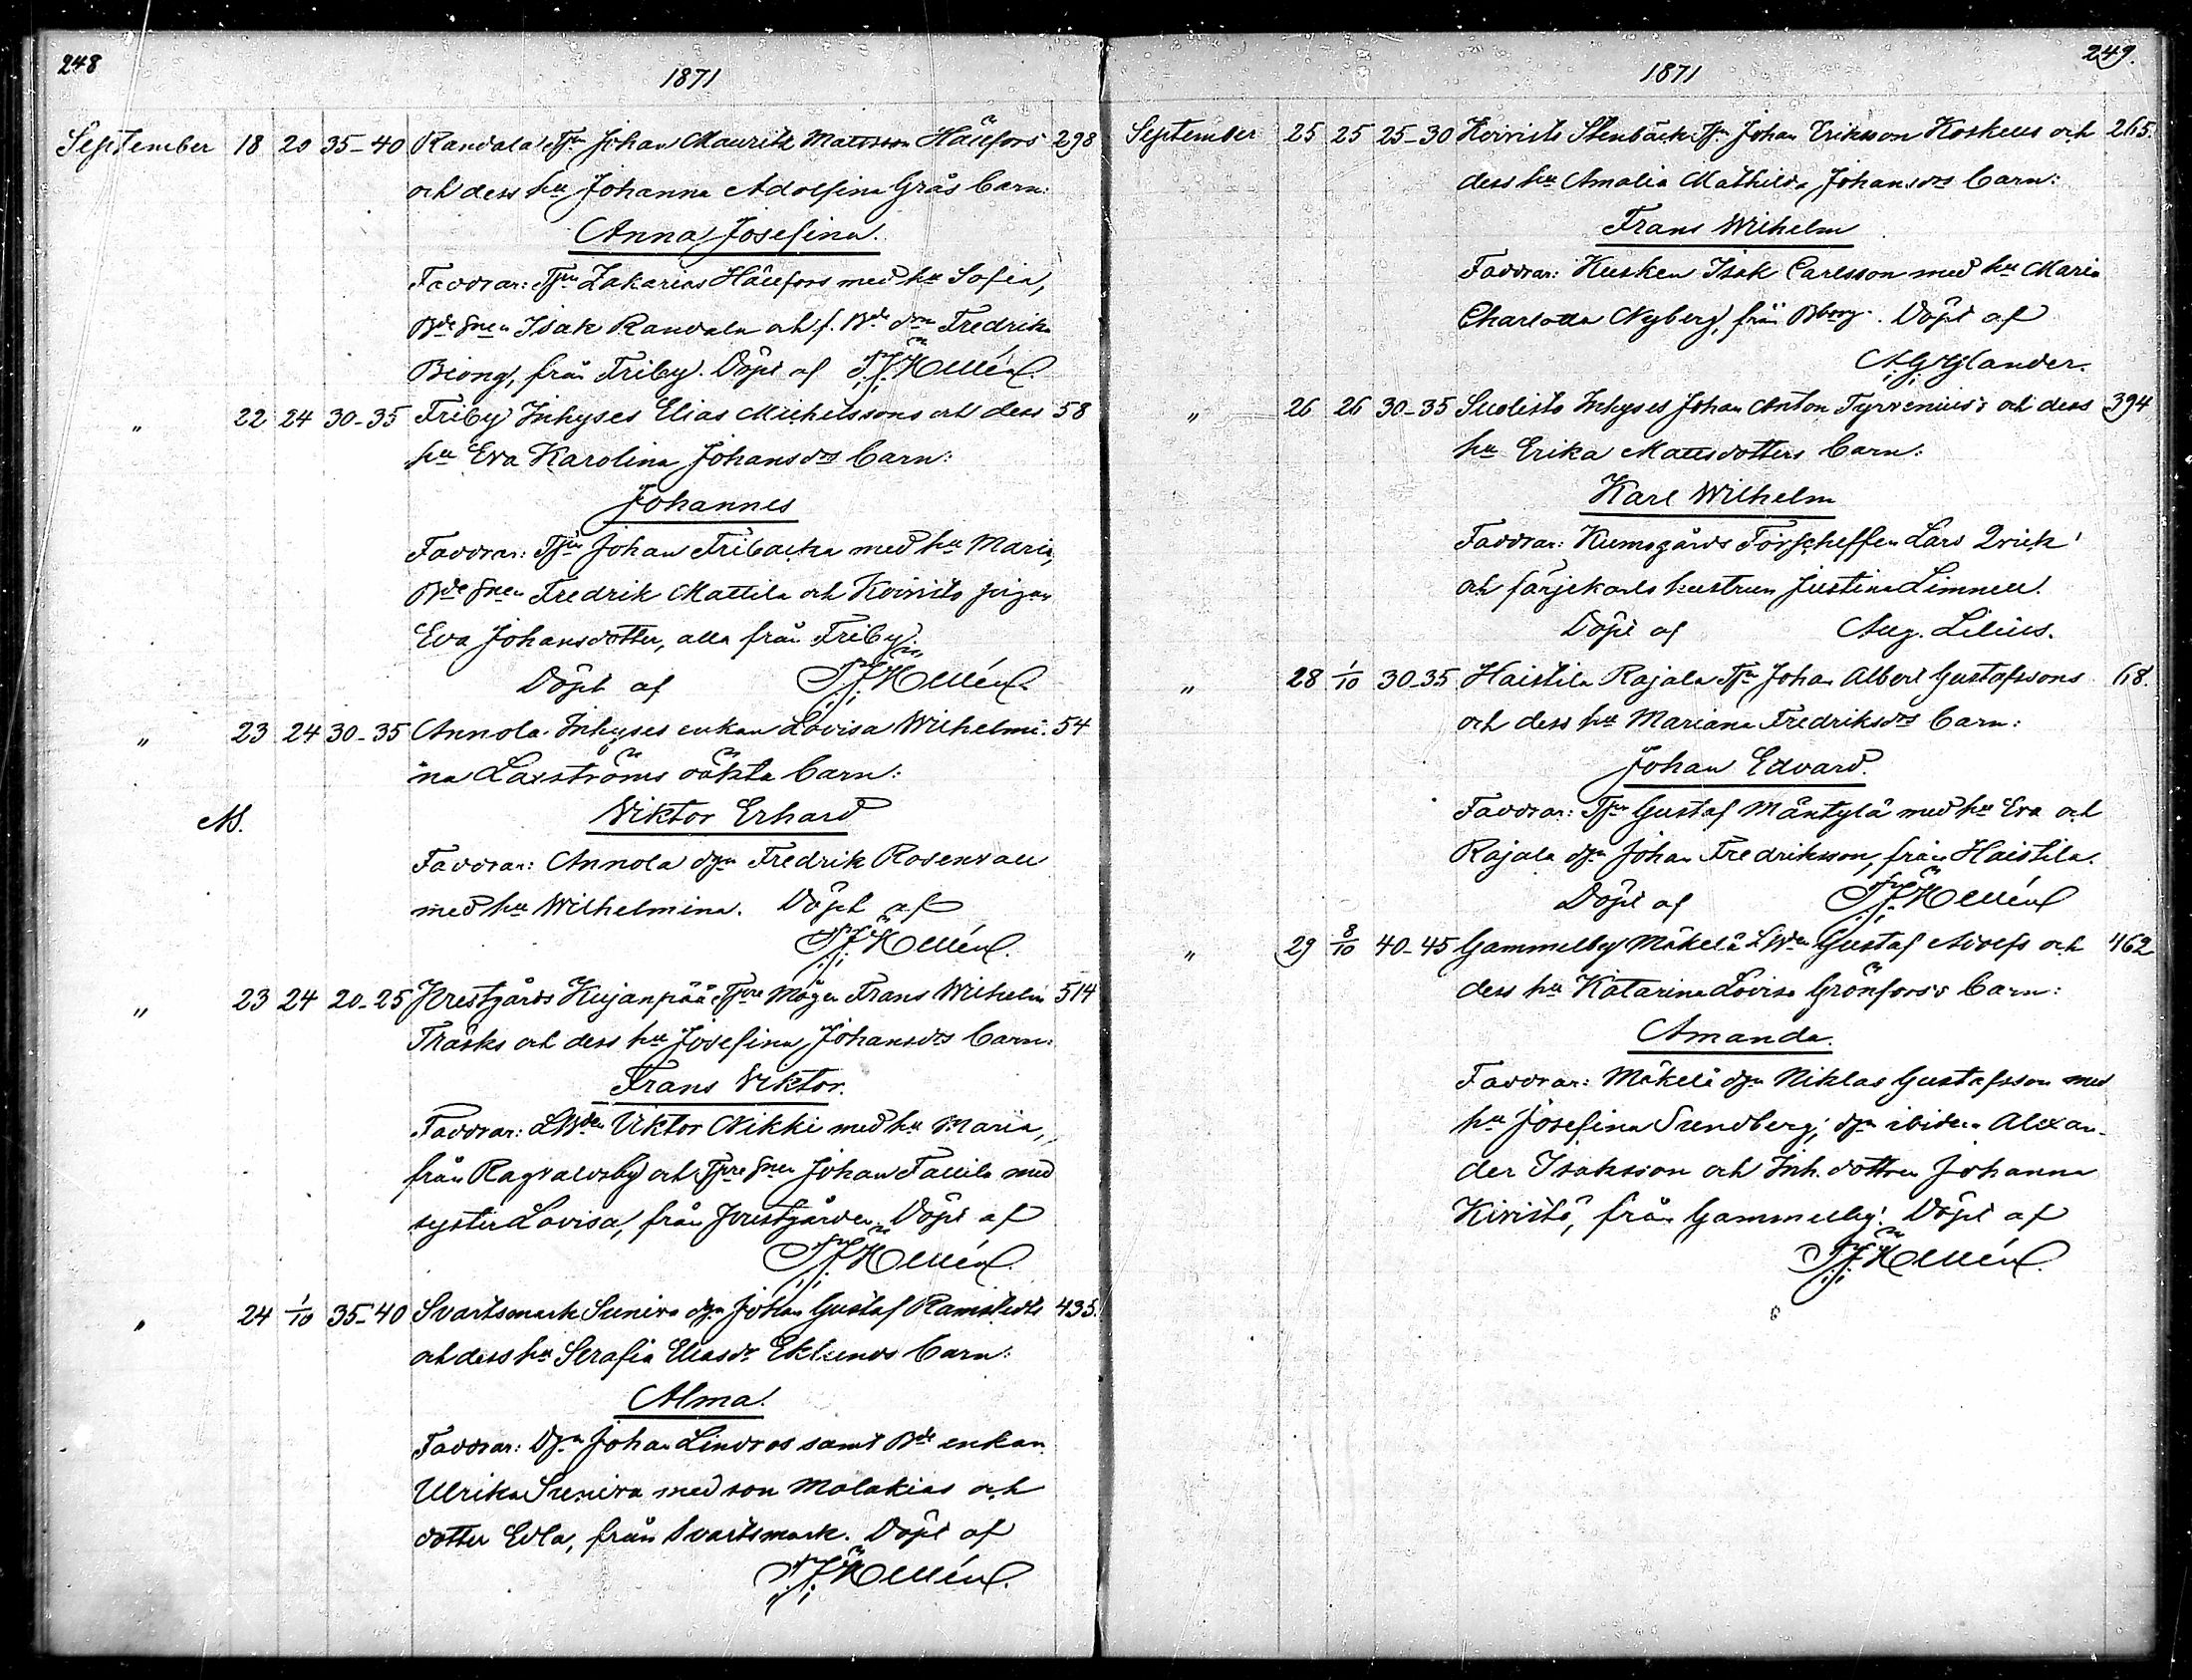 248
1871
September 18 20 35-40 Randala Tjn Johan Mauritz Mattsson Hällfors 298
och dess hu Johanna Adolfina Grås barn:
Anna Josefina.
Faddrar: Tjn Zakarias Hällfors med hu Sofia,
Bde snen Isak Randala och f. Bde drn Fredrika
Biong, från Friby. Döpt af F.J. Hellén.
" 22 24 30-35 Friby Inhyses Elias Michelssons och dess 58
hu Eva Karolina Johansdrs barn:
Johannes
Faddrar: Tjn Johan Fribacka med hu Maria,
Bde snen Fredrik Mattila och Koivisto pigan
Eva Johansdotter, alla från Friby.
Döpt af F.J. Hellén.
" 23 24 30-35 Annola Inhyses enkan Lovisa Wilhelmi- 54
na Laxströms oäkta barn:
Viktor Erhard
Faddrar: Annola dgn Fredrik Rosenvall
med hu Wilhelmina. Döpt af
F.J. Hellén.
" 23 24 20-25 Prestgårds Kujanpää Tjre Mågen Frans Wilhelm 514
Träsks och dess hu Josefina Johansdrs barn:
Frans Viktor.
Faddrar: LBden Viktor Nikki med hu Maria,
från Ragvaldsby och Tjre snen Johan Tallila med
syster Lovisa, från Prestgården. Döpt af
F.J. Hellén.
" 24 1/10 35-40 Svartsmark Suniva dgn Johan Gustaf Ramstedts 435.
och dess hu Serafia Eliasdr Eklunds barn:
Alma.
Faddrar: Dgn Johan Lindros samt Bde enkan
Ulrika Suniva med son Malakias och
dotter Edla, från Svartsmark. Döpt af
F.J. Hellén.
249.
1871
September 25 25 25-30 Koivisto Stenbäck Tjn Johan Eriksson Koskus och 265.
dess hu Amalia Mathilda Johansdrs barn:
Frans Wilhelm
Faddrar: Kusken Isak Carlsson med hu Maria
Charlotta Nyberg, från Bborg. Döpt af
A.G. Glander.
" 26 26 30-35 Suolisto Inhyses Johan Anton Tyrvenius's och dess 394
hu Erika Mattsdotters barn:
Karl Wilhelm
Faddrar: Kumogårds Lars Qvick
och färjekarls hustrun Justina Limnell.
Döpt af Aug. Lilius.
" 28 1/10 30-35 Haistila Rajala Tjn Johan Albert Gustafssons 68.
och dess hu Mariana Fredriksdrs barn:
Johan Edvard.
Faddrar: Tjn Gustaf Mäntylä med hu Eva och
Rajala dgn Johan Fredriksson, från Haistila.
Döpt af F.J. Hellén
" 29 8/10 40-45 Gammelby Mäkelä LBden Gustaf Adolfs och 462
dess hu Katarina Lovisa Grönfors's barn:
Amanda.
Faddrar: Mäkelä dgn Niklas Gustafsson med
hu Josefina Sundberg; dgn ibidem Alexan-
der Isaksson och Inh. dottren Johanna
Kivistö, från Gammelby. Döpt af
F.J. Hellén.